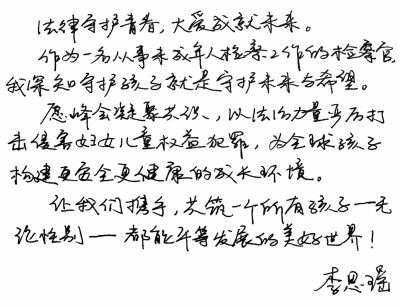 法律守护青春，大爱成就未来。
作为一名从事未成年人检察工作的检察官，
我深知守护孩子就是守护未来与希望。
愿峰会凝聚共识，以法治力量严厉打
击侵害妇女儿童权益犯罪，为全球孩子
构建更安全更健康的成长环境。
让我们携手，共筑一个所有孩子—无
论性别—都能平等发展的美好世界！
李思瑶